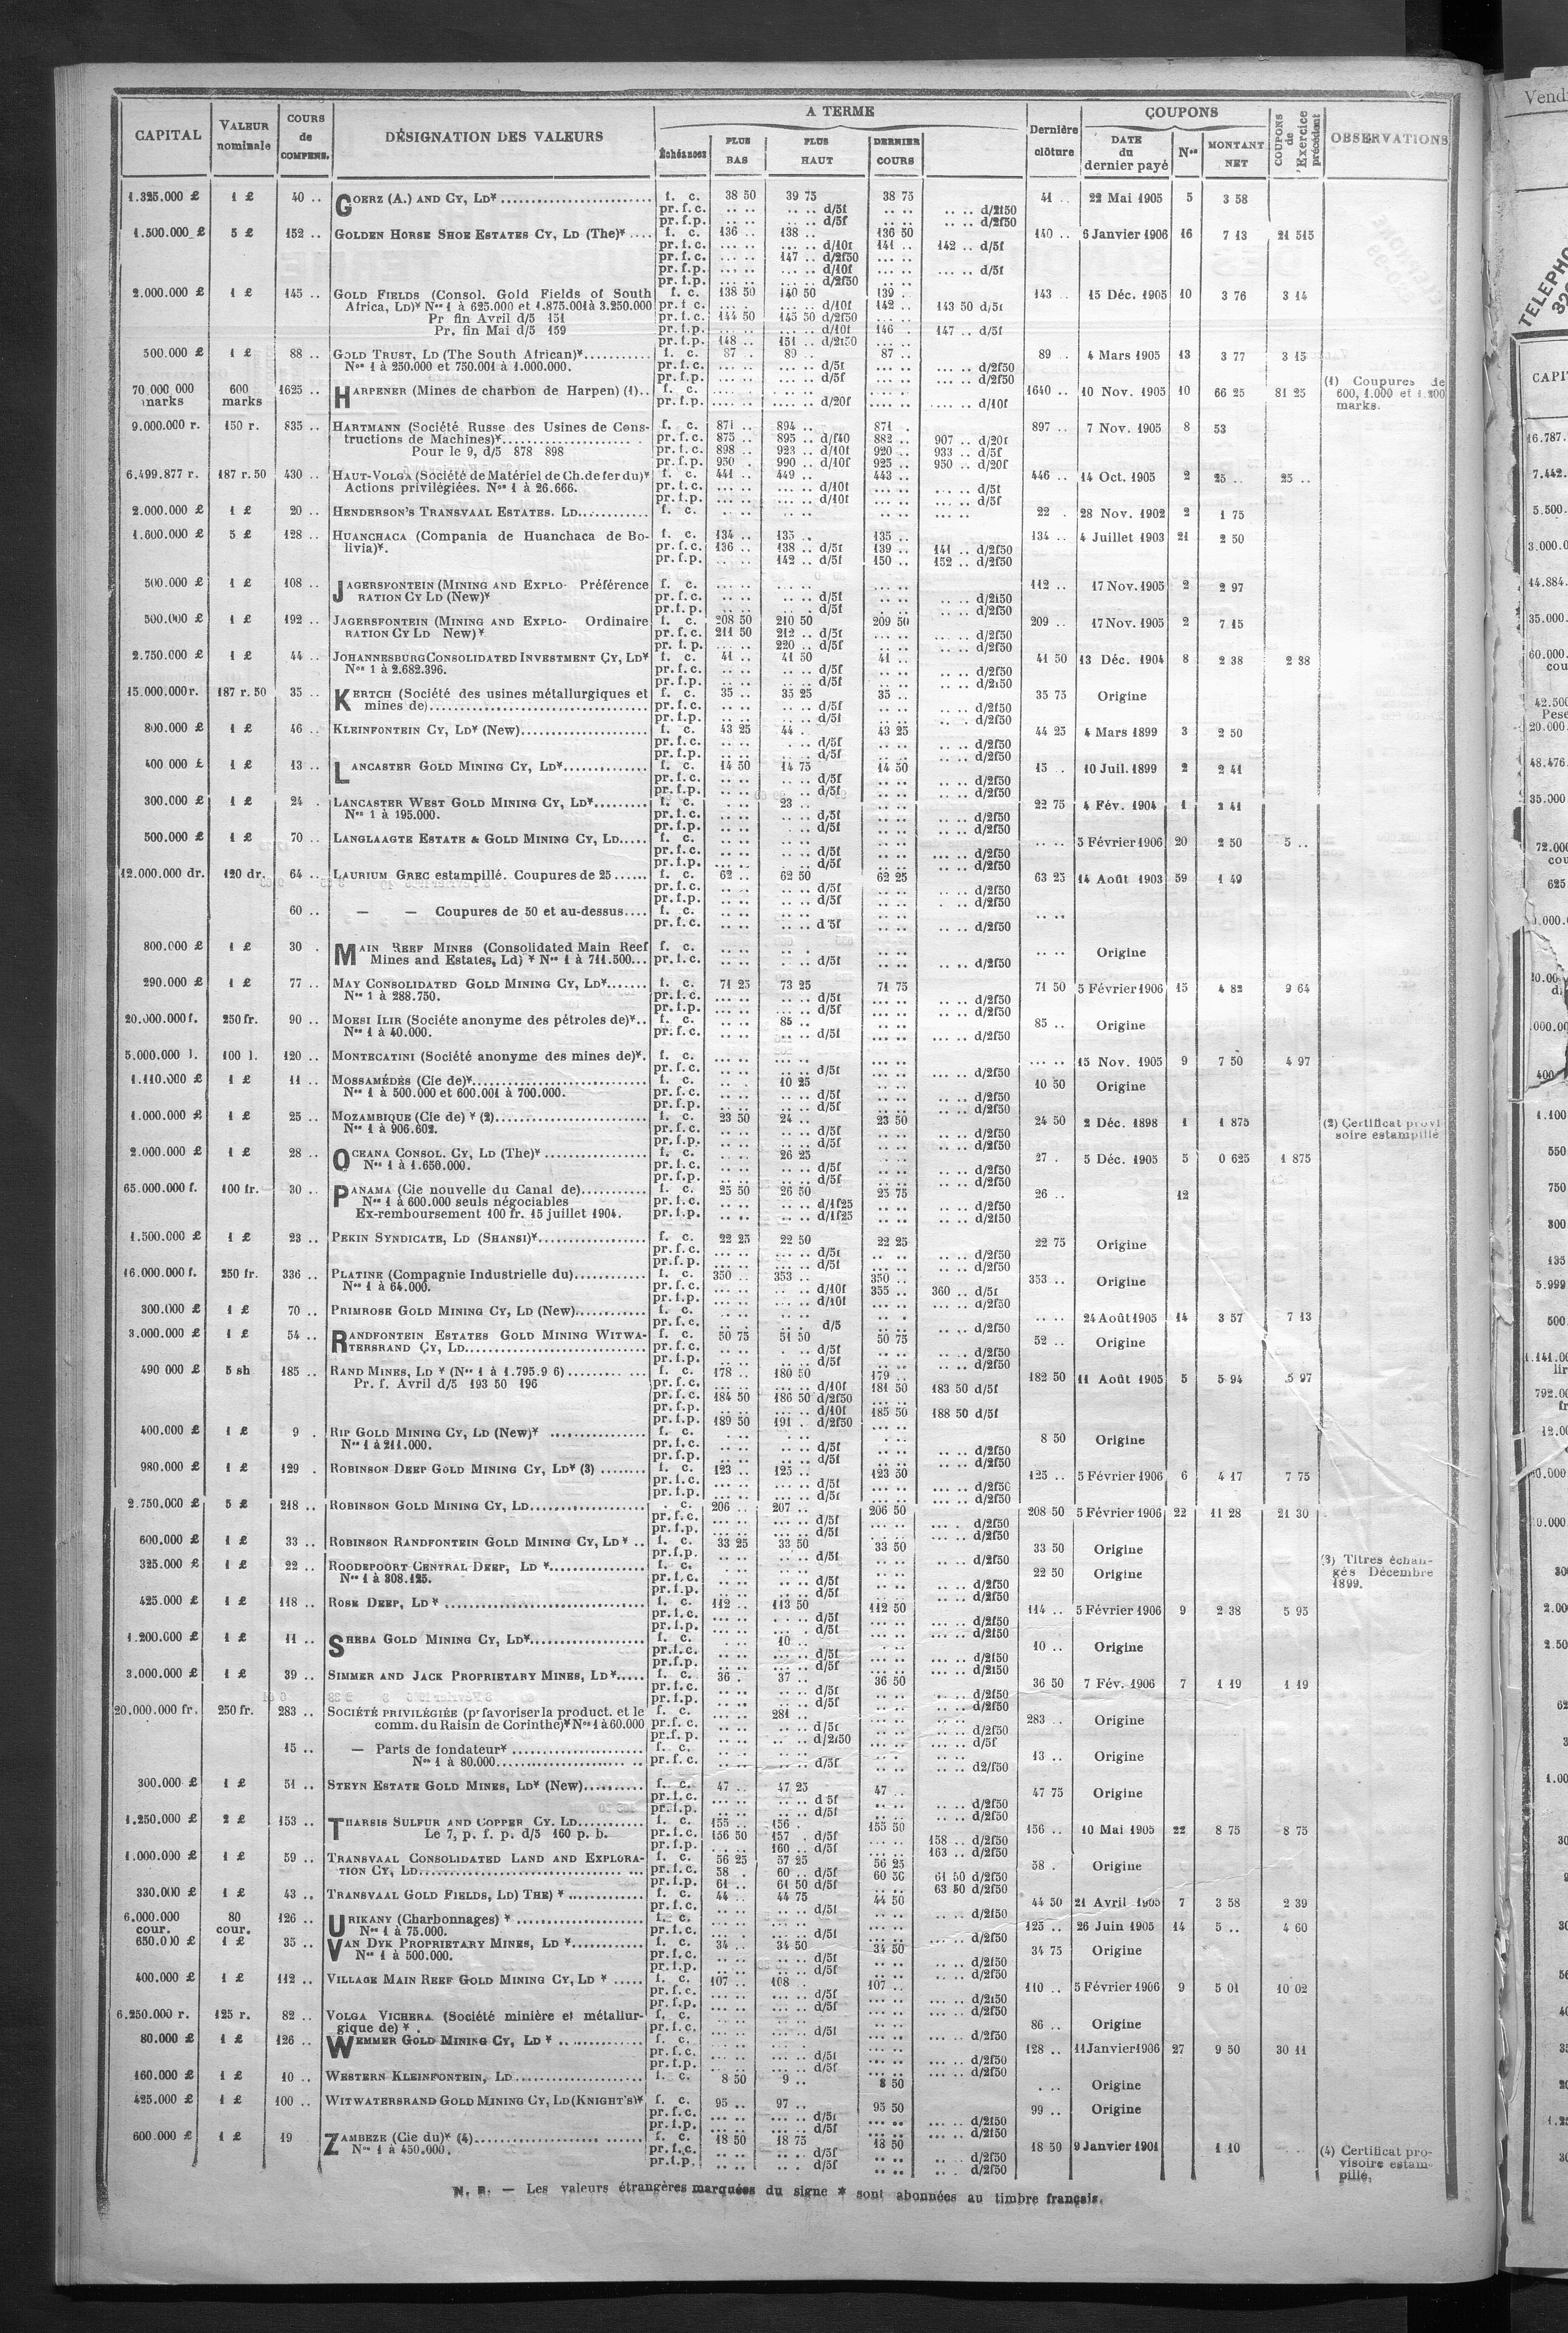 CAPITAL
VALEUR nominale
COURS de COMPENS.
DÉSIGNATION DES VALEURS
A TERME
Échéances
PLUS BAS
PLUS HAUT
DERNIER COURS
Dernière clôture
COUPONS
DATE du dernier payé
Nos
MONTANT NET
COUPONS de l'Exercice précédent
OBSERVATIONS
1.325.000 £ 1 £ 40 .. GOERZ (A.) AND CY, LD* f. c. 38 50 39 75 38 75 41 .. 22 Mai 1905 5 3 58
pr. f. c. .. .. .. .. d/5f .. .. .. .. d/2f50
pr. f.p. .. .. .. .. d/5f .. .. .. .. d/2f50
1.500.000 £ 5 £ 152 .. GOLDEN HORSE SHOE ESTATES CY, LD (The)* f. c. 136 .. 138 .. 136 50 140 .. 6 Janvier 1906 16 7 13 21 515
pr. f. c. ... .. ... .. d/10f 141 .. 142 .. d/5f
pr. f. c. ... .. 147 .. d/2f50 ... ..
pr. f.p. ... .. ... .. d/10f ... .. ... .. d/5f
pr. f.p. ... .. ... .. d/2f50 ... ..
2.000.000 £ 1 £ 145 .. GOLD FIELDS (Consol. Gold Fields of South f. c. 138 50 140 50 139 . 143 .. 15 Déc. 1905 10 3 76 3 14
Africa, LD)* Nos 1 à 625.000 et 1.875.001 à 3.250.000 pr. f. c. ... . ... .. d/10f 142 .. 143 50 d/5f
Pr fin Avril d/5 151 pr. f. c. 144 50 145 50 d/2f50 ... ..
Pr. fin Mai d/5 159 pr. f.p. ... .. ... .. d/10f 146 . 147 .. d/5f
pr. f.p. 148 .. 151 .. d/2f50 ... ..
500.000 £ 1 £ 88 .. GOLD TRUST, LD (The South African)* f. c. 87 . 89 .. 87 .. 89 .. 4 Mars 1905 13 3 77 3 15
Nos 1 à 250.000 et 750.001 à 1.000.000. pr. f. c. ... .. ... .. d/5f ... .. .. .. d/2f50
pr. f.p. ... .. ... .. d/5f ... .. .. .. d/2f50
70.000.000 marks 600 marks 1625 .. HARPENER (Mines de charbon de Harpen) (1).. f. c. .... .. .... .. .... .. 1640 .. 10 Nov. 1905 10 66 25 81 25 (1) Coupures de 600, 1.000 et 1.200 marks.
pr. f.p. .... .. .... .. d/20f .... .. .... .. d/10f
9.000.000 r. 150 r. 835 .. HARTMANN (Société Russe des Usines de Cons- f. c. 871 .. 894 .. 871 . 897 .. 7 Nov. 1905 8 53
tructions de Machines)* pr. f.c. 875 .. 895 .. d/f40 882 .. 907 .. d/20f
Pour le 9, d/5 878 898 pr. f.c. 898 .. 923 .. d/10f 920 .. 933 .. d/5f
pr. f.p. 950 . 990 .. d/10f 925 .. 950 .. d/20f
6.499.877 r. 187 r. 50 430 .. HAUT-VOLGA (Société de Matériel de Ch. de fer du)* f. c. 441 .. 449 .. 443 .. 446 .. 14 Oct. 1905 2 25 .. 25 ..
Actions privilégiées. Nos 1 à 26.666. pr. f.c. ... .. ... .. d/10f ... .. ... .. d/5f
pr. f.p. ... .. ... .. d/10f ... .. ... .. d/5f
2.000.000 £ 1 £ 20 .. HENDERSON'S TRANSVAAL ESTATES. LD f. c. .. .. .. .. .. .. 22 . 28 Nov. 1902 2 1 75
1.600.000 £ 5 £ 128 .. HUANCHACA (Compania de Huanchaca de Bo- f. c. 134 .. 135 . 135 .. 134 .. 4 Juillet 1903 21 2 50
livia)*. pr. f.c. 136 .. 138 .. d/5f 139 .. 141 .. d/2f50
pr. f.p. .. .. 142 .. d/5f 150 .. 152 .. d/2f50
500.000 £ 1 £ 108 .. JAGERSFONTEIN (MINING AND EXPLO- Préférence f. c. ... .. ... .. ... .. 112 .. 17 Nov. 1905 2 2 97
RATION CY LD (New)* pr. f.c. ... .. .. .. d/5f ... .. .. .. d/2f50
pr. f.p. ... .. .. .. d/5f ... .. .. .. d/2f50
500.000 £ 1 £ 192 .. JAGERSFONTEIN (MINING AND EXPLO- Ordinaire f. c. 208 50 210 50 209 50 209 .. 17 Nov. 1905 2 7 15
RATION CY LD New)* pr. f.c. 211 50 212 .. d/5f ... .. .. .. d/2f50
pr. f. p. ... .. 220 .. d/5f ... .. .. .. d/2f50
2.750.000 £ 1 £ 44 .. JOHANNESBURG CONSOLIDATED INVESTMENT CY, LD* f. c. 41 .. 41 50 41 .. 41 50 13 Déc. 1904 8 2 38 2 38
Nos 1 à 2.682.396. pr. f.c. .. .. .. .. d/5f .. .. .. .. d/2f50
pr. f.p. .. .. .. .. d/5f .. .. .. .. d/2f50
15.000.000 r. 187 r. 50 35 .. KERTCH (Société des usines métallurgiques et f. c. 35 .. 35 25 35 .. 35 75 Origine
mines de) pr. f.c. .. .. .. .. d/5f .. .. .. .. d/2f50
pr. f.p. .. .. .. .. d/5f .. .. .. . d/2f50
800.000 £ 1 £ 46 .. KLEINFONTEIN CY, LD* (New) f. c. 43 25 44 . 43 25 44 25 4 Mars 1899 3 2 50
pr. f.c. .. .. . .. d/5f .. .. .. .. d/2f50
pr. f.p. .. .. .. .. d/5f .. .. .. .. d/2f50
400.000 £ 1 £ 13 .. LANCASTER GOLD MINING CY, LD* f. c. 14 50 14 75 14 50 15 . 10 Juil. 1899 2 2 41
pr. f.c. .. .. .. .. d/5f .. .. .. .. d/2f50
pr. f.p. .. .. .. .. d/5f .. .. .. .. d/2f50
300.000 £ 1 £ 24 . LANCASTER WEST GOLD MINING CY, LD* f. c. . .. 23 .. .. .. 22 75 4 Fév. 1904 1 2 41
Nos 1 à 195.000. pr. f.c. .. .. .. .. d/5f .. .. .. .. d/2f50
pr. f.p. .. .. . .. d/5f .. .. .. .. d/2f50
500.000 £ 1 £ 70 .. LANGLAAGTE ESTATE & GOLD MINING CY, LD f. c. .. .. .. .. .. .. .. .. 5 Février 1906 20 2 50 5 ..
pr. f.c. .. .. .. .. d/5f .. .. ... .. d/2f50
pr. f.p. ... .. .. .. d/5f .. .. ... .. d/2f50
12.000.000 dr. 120 dr. 64 .. LAURIUM GREC estampillé. Coupures de 25 f. c. 62 .. 62 50 62 25 63 25 14 Août 1903 59 1 49
pr. f.c. .. .. .. .. d/5f .. .. .. .. d/2f50
pr. f.p. .. .. .. .. d/5f .. .. . .. d/2f50
60 .. — — Coupures de 50 et au-dessus f. c. .. .. .. .. .. .. .. ..
pr. f.c. .. .. .. .. d'5f .. .. d/2f50
800.000 £ 1 £ 30 . MAIN REEF MINES (Consolidated Main Reef f. c. .. .. .. . .. .. .. .. Origine
Mines and Estates, Ld) * Nos 1 à 711.500 pr. f.c. .. .. .. .. d/5f .. .. .. .. d/2f50
290.000 £ 1 £ 77 .. MAY CONSOLIDATED GOLD MINING CY, LD* f. c. 71 25 73 25 71 75 71 50 5 Février 1906 15 4 82 9 64
Nos 1 à 288.750. pr. f.c. .. .. .. .. d/5f .. .. .. .. d/2f50
pr. f.p. .. .. .. .. d/5f .. .. .. .. d/2f50
20.000.000 f. 250 fr. 90 .. MOESI ILIR (Sociéte anonyme des pétroles de)*.. f. c. .. .. 85 .. .. .. 85 .. Origine
Nos 1 à 40.000. pr. f.c. .. .. .. .. d/5f .. .. ... .. d/2f50
5.000.000 l. 100 l. 120 .. MONTECATINI (Société anonyme des mines de)*. f. c. ... .. ... .. ... .. ... .. 15 Nov. 1905 9 7 50 4 97
pr. f.c. ... .. ... .. d/5f ... .. ... .. d/2f50
1.110.000 £ 1 £ 11 .. MOSSAMÉDÈS (Cie de)* f. c. .. . 10 25 .. .. 10 50 Origine
Nos 1 à 500.000 et 600.001 à 700.000. pr. f.c. .. .. .. .. d/5f .. .. .. .. d/2f50
pr. f.p. .. .. .. .. d/5f .. .. .. .. d/2f50
1.000.000 £ 1 £ 25 .. MOZAMBIQUE (Cie de) * (2) f. c. 23 50 24 .. 23 50 24 50 2 Déc. 1898 1 1 875 (2) Certificat provisoire estampillé
Nos 1 à 906.602. pr. f.c. .. .. .. .. d/5f .. .. .. .. d/2f50
pr. f.p. .. .. .. .. d/5f .. .. .. .. d/2f50
2.000.000 £ 1 £ 28 .. OCEANA CONSOL. CY, LD (The)* f. c. .. .. 26 25 .. .. 27 . 5 Déc. 1905 5 0 625 1 875
Nos 1 à 1.650.000. pr. f.c. .. .. .. .. d/5f .. .. .. .. d/2f50
pr. f.p. .. .. .. .. d/5f .. .. .. .. d/2f50
65.000.000 f. 100 fr. 30 .. PANAMA (Cie nouvelle du Canal de) f. c. 25 50 26 50 25 75 26 .. 12
Nos 1 à 600.000 seuls négociables pr. f.c. .. .. .. .. d/1f25 .. .. .. .. d/2f50
Ex-remboursement 100 fr. 15 juillet 1904. pr. f.p. .. .. .. .. d/1f25 .. .. .. .. d/2f50
1.500.000 £ 1 £ 23 .. PEKIN SYNDICATE, LD (SHANSI)* f. c. 22 25 22 50 22 25 22 75 Origine
pr. f.c. .. .. .. .. d/5f .. .. .. .. d/2f50
pr. f.p. ... .. ... .. d/5f ... .. ... .. d/2f50
16.000.000 f. 250 fr. 336 .. PLATINE (Compagnie Industrielle du) f. c. 350 .. 353 .. 350 .. 353 .. Origine
Nos 1 à 64.000. pr. f.c. ... .. .. .. d/10f 355 .. 360 .. d/5f
pr. f.p. ... .. ... .. d/10f ... .. ... .. d/2f50
300.000 £ 1 £ 70 .. PRIMROSE GOLD MINING CY, LD (New) f. c. .. .. .. .. .. .. .. .. 24 Août 1905 14 3 57 7 13
pr. f.c. .. .. .. .. d/5 .. .. .. .. d/2f50
3.000.000 £ 1 £ 54 .. RANDFONTEIN ESTATES GOLD MINING WITWA- f. c. 50 75 51 50 50 75 52 .. Origine
TERSRAND CY, LD pr. f.c. .. .. . .. d/5f .. .. .. .. d/2f50
pr. f.p. .. .. .. .. d/5f .. .. .. .. d/2f50
490 000 £ 5 sh 185 .. RAND MINES, LD * (Nos 1 à 1.795.9 6) f. c. 178 .. 180 50 179 .. 182 50 11 Août 1905 5 5 94 5 97
Pr. f. Avril d/5 193 50 196 pr. f.c. ... .. ... .. d/10f 181 50 183 50 d/5f
pr. f.c. 184 50 186 50 d/2f50 ... ..
pr. f.p. ... .. ... .. d/10f 185 50 188 50 d/5f
pr. f.p. 189 50 191 . d/2f50 ... ..
400.000 £ 1 £ 9 . RIP GOLD MINING CY, LD (New)* f. c. . .. .. . .. .. 8 50 Origine
Nos 1 à 211.000. pr. f.c. .. .. .. .. d/5f .. .. .. .. d/2f50
pr. f.p. .. .. .. .. d/5f .. .. .. .. d/2f50
980.000 £ 1 £ 129 . ROBINSON DEEP GOLD MINING CY, LD* (3) f. c. 123 .. 125 .. 123 50 125 .. 5 Février 1906 6 4 17 7 75
pr. f.c. ... .. ... .. d/5f ... .. ... .. d/2f50
pr. f.p. ... .. ... .. d/5f ... .. ... .. d/2f50
2.750.000 £ 5 £ 218 .. ROBINSON GOLD MINING CY, LD . c. 206 .. 207 .. 206 50 208 50 5 Février 1906 22 11 28 21 30
pr. f.c. ... .. ... .. d/5f ... .. ... . d/2f50
pr. f.p. ... .. ... .. d/5f ... .. ... .. d/2f50
600.000 £ 1 £ 33 .. ROBINSON RANDFONTEIN GOLD MINING CY, LD * .. f. c. 33 25 33 50 33 50 33 50 Origine
pr. f.p. .. .. .. .. d/5f .. .. .. .. d/2f50
325.000 £ 1 £ 22 .. ROODEPOORT CENTRAL DEEP, LD * f. c. .. .. .. .. .. .. 22 50 Origine (3) Titres échangés Décembre 1899.
Nos 1 à 308.125. pr. f.c. .. .. .. .. d/5f .. .. .. .. d/2f50
pr. f.p. .. .. .. .. d/5f .. .. .. .. d/2f50
425.000 £ 1 £ 118 .. ROSE DEEP, LD * f. c. 112 .. 113 50 112 50 114 .. 5 Février 1906 9 2 38 5 95
pr. f.c. ... .. .. .. d/5f ... .. ... .. d/2f50
pr. f.p. ... .. .. .. d/5f ... .. ... .. d/2f50
1.200.000 £ 1 £ 11 .. SHEBA GOLD MINING CY, LD* f. c. . .. 10 .. . .. 10 .. Origine
pr. f.c. .. .. ... .. d/5f .. .. .. .. d/2f50
pr. f.p. .. .. ... .. d/5f .. .. .. .. d/2f50
3.000.000 £ 1 £ 39 .. SIMMER AND JACK PROPRIETARY MINES, LD* f. c. 36 . 37 .. 36 50 36 50 7 Fév. 1906 7 1 19 1 19
pr. f.c. .. .. .. .. d/5f .. .. .. .. d/2f50
pr. f.p. .. .. .. .. d/5f .. .. .. .. d/2f50
20.000.000 fr. 250 fr. 283 .. SOCIÉTÉ PRIVILÉGIÉE (pr favoriser la product. et le f. c. ... .. 281 .. .. .. 283 .. Origine
comm. du Raisin de Corinthe)* Nos 1 à 60.000 pr. f. c. .. .. .. .. d/5f .. .. .. .. d/2f50
pr. f. p. .. .. .. .. d/2f50 .. .. .. .. d/5f
15 .. — Parts de fondateur* f. c. .. .. .. .. .. .. 13 .. Origine
Nos 1 à 80.000 pr. f. c. .. .. .. .. d/5f .. .. .. .. d2/f50
300.000 £ 1 £ 51 .. STEYN ESTATE GOLD MINES, LD* (New) f. c. 47 .. 47 25 47 .. 47 75 Origine
pr. f.c. .. .. .. .. d 5f .. .. .. .. d/2f50
pr. f.p. .. .. .. .. d/5f .. .. .. .. d/2f50
1.250.000 £ 2 £ 153 .. THARSIS SULFUR AND COPPER CY. LD f. c. 155 .. 156 . 155 50 156 .. 10 Mai 1905 22 8 75 8 75
Le 7, p. f. p. d/5 160 p. b. pr. f.c. 156 50 157 . d/5f ... .. 158 .. d/2f50
pr. f.p. ... .. 160 .. d/5f ... .. 163 .. d/2f50
1.000.000 £ 1 £ 59 .. TRANSVAAL CONSOLIDATED LAND AND EXPLORA- f. c. 56 25 57 25 56 25 58 . Origine
TION CY, LD pr. f.c. 58 . 60 .. d/5f 60 50 61 50 d/2f50
pr. f.p. 61 .. 61 50 d/5f .. .. 63 50 d/2f50
330.000 £ 1 £ 43 .. TRANSVAAL GOLD FIELDS, LD) THE) * f. c. 44 .. 44 75 44 50 44 50 21 Avril 1905 7 3 58 2 39
pr. f.c. .. .. .. .. d/5f .. .. .. .. d/2f50
6.000.000 cour. 80 cour. 126 .. URIKANY (Charbonnages) * f. c. ... .. ... .. ... .. 125 .. 26 Juin 1905 14 5 .. 4 60
Nos 1 à 75.000. pr. f.c. ... .. ... .. d/5f ... .. ... .. d/2f50
650.000 £ 1 £ 35 .. VAN DYK PROPRIETARY MINES, LD * f. c. 34 .. 34 50 34 50 34 75 Origine
Nos 1 à 500.000. pr. f.c. .. .. .. .. d/5f .. .. .. .. d/2f50
pr. f.p. .. .. .. .. d/5f .. .. .. .. d/2f50
400.000 £ 1 £ 112 .. VILLAGE MAIN REEF GOLD MINING CY, LD * f. c. 107 .. 108 . 107 .. 110 .. 5 Février 1906 9 5 01 10 02
pr. f.c. ... .. ... .. d/5f ... .. ... .. d/2f50
pr. f.p. ... .. ... .. d/5f ... .. ... .. d/2f50
6.250.000 r. 125 r. 82 .. VOLGA VICHERA (Société minière et métallur- f. c. .. .. .. .. .. .. 86 .. Origine
gique de) *. pr. f.c. ... .. ... .. d/5f ... .. ... .. d/2f50
80.000 £ 1 £ 126 .. WEMMER GOLD MINING CY, LD * f. c. ... .. ... .. ... .. 128 .. 11 Janvier 1906 27 9 50 30 11
pr. f.c. ... .. ... .. d/5f ... .. ... .. d/2f50
pr. f.p. ... .. ... .. d/5f ... .. ... .. d/2f50
160.000 £ 1 £ 10 .. WESTERN KLEINFONTEIN, LD f. c. 8 50 9 .. 8 50 . .. Origine
425.000 £ 1 £ 100 .. WITWATERSRAND GOLD MINING CY, LD (KNIGHT'S)* f. c. 95 .. 97 .. 95 50 99 .. Origine
pr. f.c. ... .. ... .. d/5f ... .. ... .. d/2f50
pr. f.p. ... .. ... .. d/5f ... .. ... .. d/2f50
600.000 £ 1 £ 19 ZAMBEZE (Cie du)* (4) f. c. 18 50 18 75 18 50 18 50 9 Janvier 1901 1 10 (4) Certificat provisoire estampillé.
Nos 1 à 450.000. pr. f.c. .. .. .. .. d/5f .. .. .. .. d/2f50
pr. f.p. .. .. .. . d/5f .. .. .. . d/2f50
N. B. — Les valeurs étrangères marquées du signe * sont abonnées au timbre français.
Vend
TELEPHO
CAPI